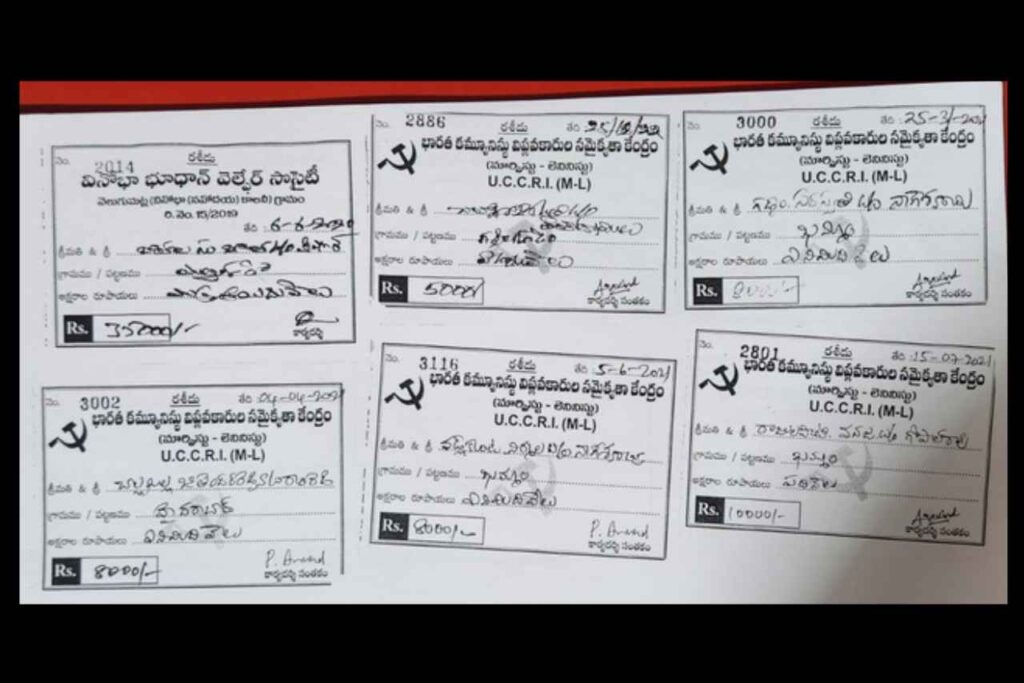 నెం. 2014
రశీదు
వినోభా భూధాన్ వెల్ఫేర్ సొసైటీ
వెలుగుమట్ల (వినోభా నవోదయ కాలనీ) గ్రామం
రి. నెం. 15/2019
తేది 6-6-2020
శ్రీమతి & శ్రీ
గ్రామము / పట్టణము
అక్షరాల రూపాయలు
Rs. 35000/-
కార్యదర్శి
నెం. 2886 రశీదు తేది
భారత కమ్యూనిస్టు విప్లవకారుల సమైక్యతా కేంద్రం
(మార్క్సిస్టు - లెనినిస్టు)
U.C.C.R.I. (M-L)
శ్రీమతి & శ్రీ
గ్రామము / పట్టణము
అక్షరాల రూపాయలు
Rs. 5000/
కార్యదర్శి సంతకం
నెం. 3000 రశీదు తేది 25-3-2021
భారత కమ్యూనిస్టు విప్లవకారుల సమైక్యతా కేంద్రం
(మార్క్సిస్టు - లెనినిస్టు)
U.C.C.R.I. (M-L)
శ్రీమతి & శ్రీ
గ్రామము / పట్టణము ఖమ్మం
అక్షరాల రూపాయలు ఎనిమిది వేలు
Rs. 8000/-
కార్యదర్శి సంతకం
నెం. 3002 రశీదు తేది 04-04-2021
భారత కమ్యూనిస్టు విప్లవకారుల సమైక్యతా కేంద్రం
(మార్క్సిస్టు - లెనినిస్టు)
U.C.C.R.I. (M-L)
శ్రీమతి & శ్రీ
గ్రామము / పట్టణము హైదరాబాద్
అక్షరాల రూపాయలు ఎనిమిది వేలు
Rs. 8000/-
P. Anand
కార్యదర్శి సంతకం
నెం. 3116 రశీదు తేది 5-6-2021
భారత కమ్యూనిస్టు విప్లవకారుల సమైక్యతా కేంద్రం
(మార్క్సిస్టు - లెనినిస్టు)
U.C.C.R.I. (M-L)
శ్రీమతి & శ్రీ నిర్మల w/o నాగేశ్వరరావు
గ్రామము / పట్టణము ఖమ్మం
అక్షరాల రూపాయలు ఎనిమిదివేలు
Rs. 8000/-
P. Anand
కార్యదర్శి సంతకం
నెం. 2801 రశీదు తేది 15-07-2021
భారత కమ్యూనిస్టు విప్లవకారుల సమైక్యతా కేంద్రం
(మార్క్సిస్టు - లెనినిస్టు)
U.C.C.R.I. (M-L)
శ్రీమతి & శ్రీ
గ్రామము / పట్టణము ఖమ్మం
అక్షరాల రూపాయలు పదివేలు
Rs. 10000/-
కార్యదర్శి సంతకం